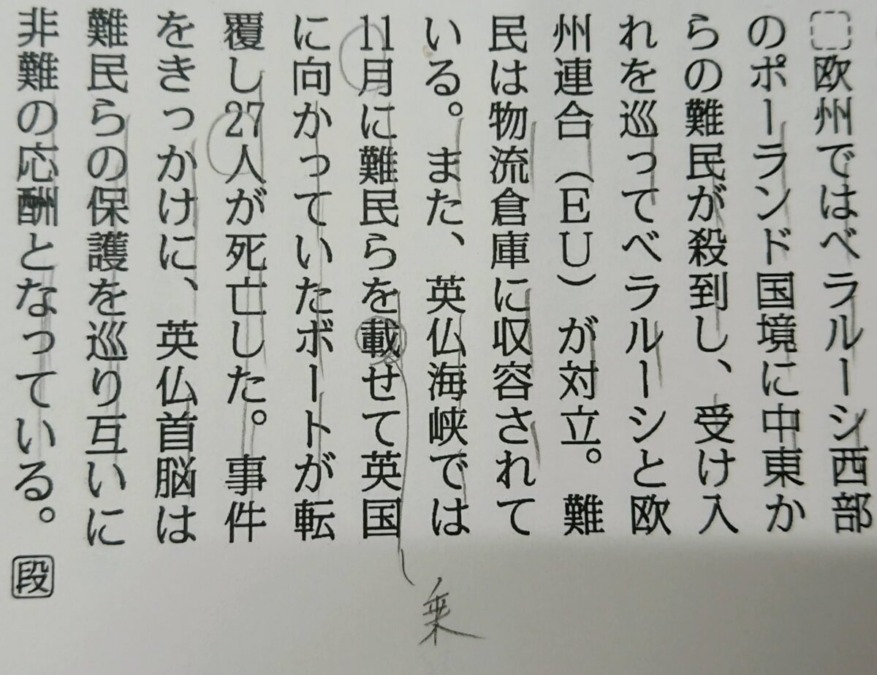 欧州ではベラルーシ西部
のポーランド国境に中東か
らの難民が殺到し、受け入
れを巡ってベラルーシと欧
州連合（ＥＵ）が対立。難
民は物流倉庫に収容されて
いる。また、英仏海峡では
11月に難民らを載せて英国
に向かっていたボートが転
覆し27人が死亡した。事件
をきっかけに、英仏首脳は
難民らの保護を巡り互いに
非難の応酬となっている。段
乗